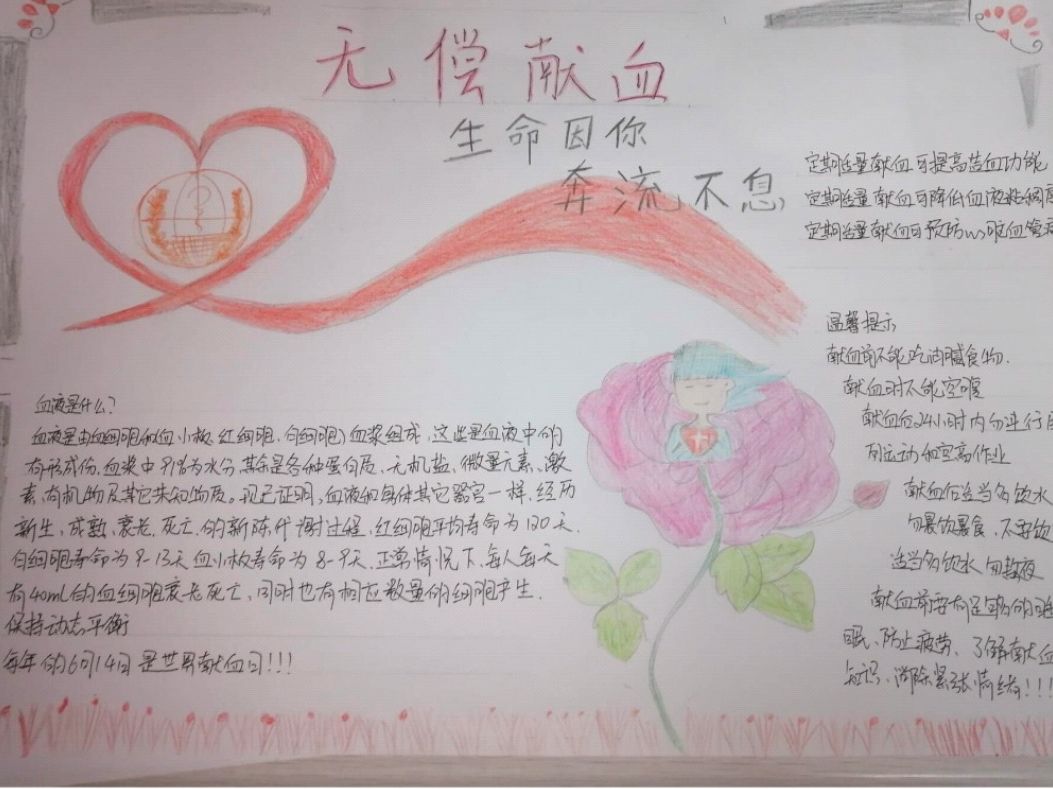 无偿献血
生命因你
奔流不息
定期适量献血可提高造血功能
定期适量献血可降低血液粘稠度
定期适量献血可预防心脏血管
温馨提示
献血前不能吃油腻食物.
献血时不能空腹
献血后24小时内勿进行
烈运动和高空作业
献血后适当多饮水
勿暴饮暴食、不要饮
适当多饮水 勿熬夜
献血前要有足够的睡
眠、防止疲劳、了解献血
知识、消除紧张情绪!!!
血液是什么?
血液是由血细胞和血小板、红细胞、白细胞)血浆组成,这些是血液中的
有形成份,血浆中91%为水分,其余是各种蛋白质、无机盐、微量元素、激
素、有机物及其它未知物质。现已证明,血液和身体其它器官一样,经历
新生,成熟,衰老,死亡,的新陈代谢过程,红细胞平均寿命为120天.
白细胞寿命为9-13天血小板寿命为8-9天.正常情况下,每人每天
有40ml的血细胞衰老死亡,同时也有相应数量的细胞产生.
保持动态平衡
每年的6月14日是世界献血日!!!